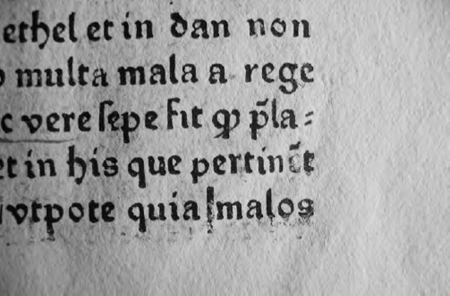 ethel et in dan non
multa mala a rege
c vere ſepe fit ꝙ p̄la⸗
et in his que pertinēt
vtpote quia malos